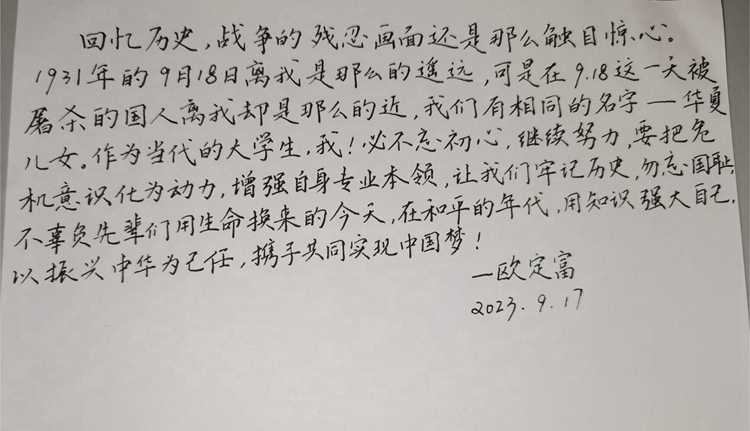 回忆历史，战争的残忍画面还是那么触目惊心。
1931年的9月18日离我是那么的遥远，可是在9.18这一天被
屠杀的国人离我却是那么的近，我们有相同的名字一华夏
儿女。作为当代的大学生，我！必不忘初心，继续努力，要把危
机意识化为动力，增强自身专业本领，让我们牢记历史，勿忘国耻，
不辜负先辈们用生命换来的今天，在和平的年代，用知识强大自己，
以振兴中华为己任，携手共同实现中国梦！
一欧定富
2023.9.17